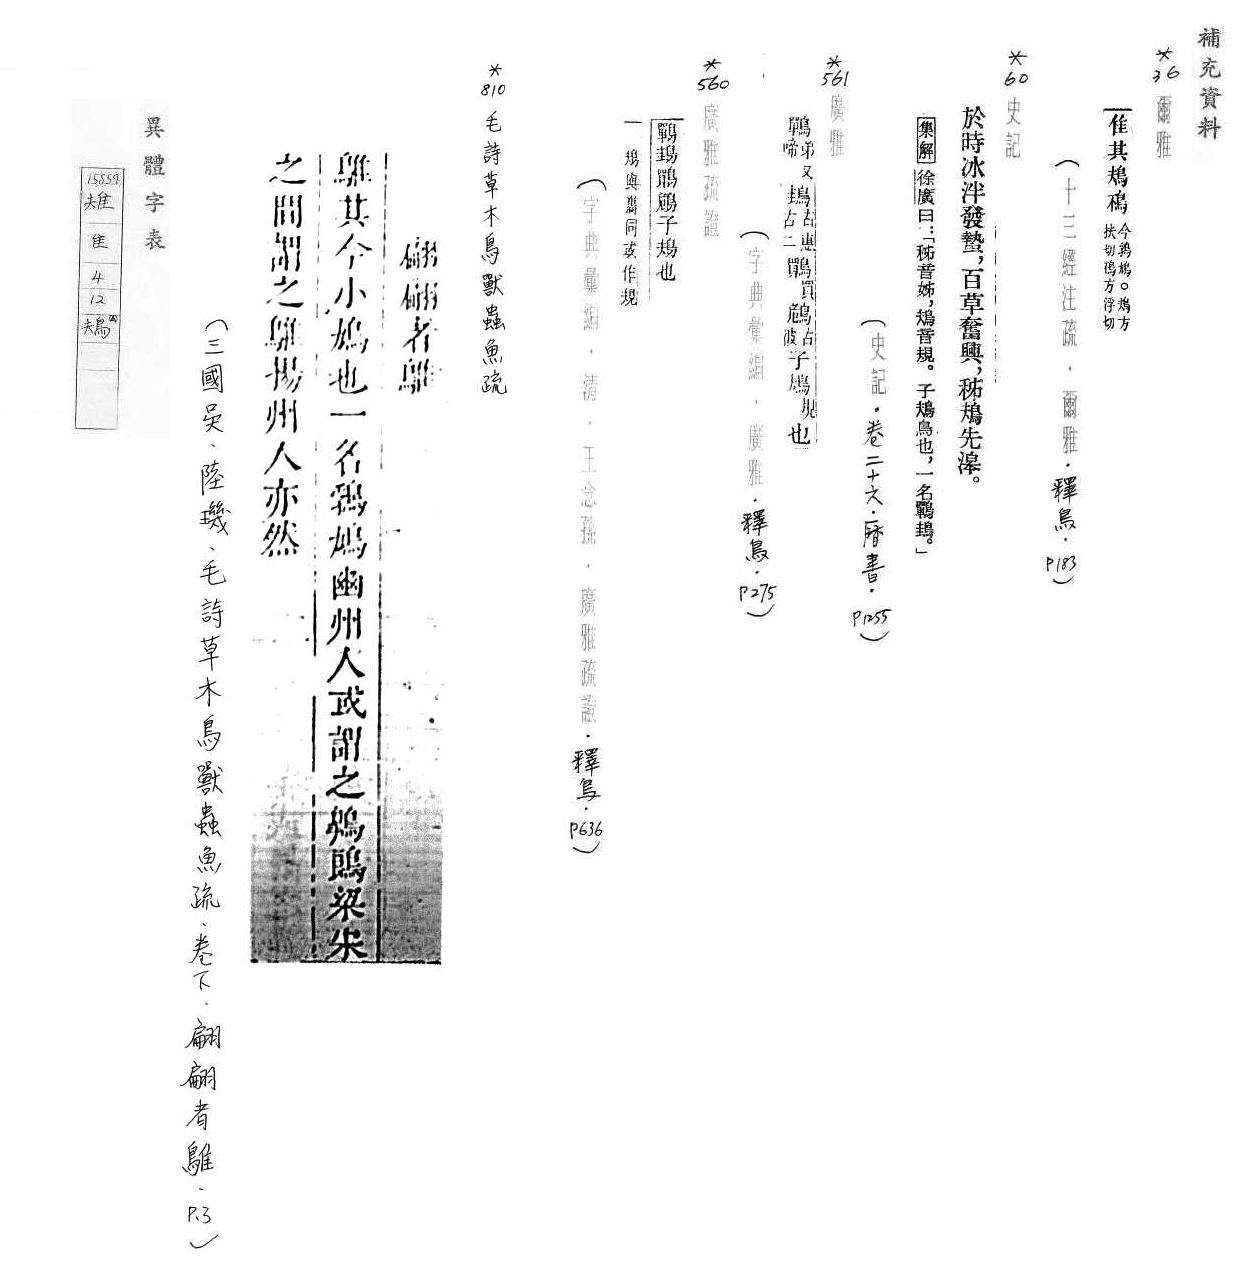 補充資料
*36 爾雅
隹其鳺鴀今鵓鳩。鳺方
扶切鴀方浮切
(十三經注疏.爾雅.釋鳥.P183)
*60 史記
於時冰泮發蟄,百草奮興,秭鳺先滜。
集解 徐廣曰:「秭音姊,鳺音規。子鳺鳥也,一名鷤䳏。」
(史記.卷二十六.曆書.P1255)
*561 廣雅
子鳺規也
(字典彙編.廣雅.釋鳥.P275)
*560 廣雅疏證
子鳺也
鳺與巂同或作規
(字典彙編.清.王念孫.廣雅疏證.釋鳥.P636)
*810 毛詩草木鳥獸蟲魚疏
翩翩者鵻
鵻其今小鳩也一名鵓鳩幽州人或謂之梁宋
之間謂之鵻揚州人亦然
(三國吳、陸璣、毛詩草木鳥獸蟲魚疏.卷下.翩翩者鵻.P.3)
異體字表
15859
隹
4
12
鳺